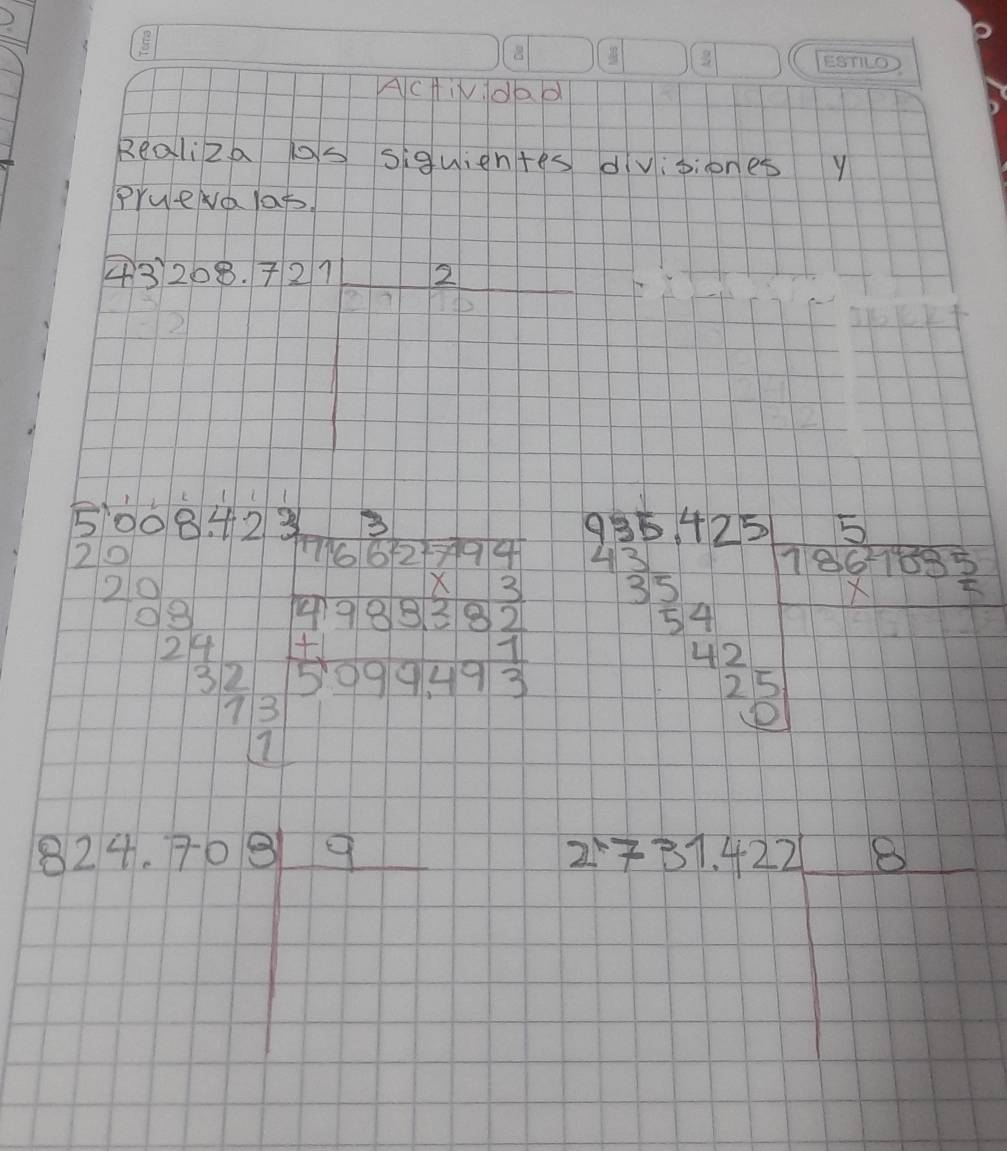 ESTILO
Actividad
Realiza las siguientes divisiones y
pruevalas.
43'208.721 2
5'008.423 3 935.425 5
20 1662794 43 187085
20 x 3 35 x 5
08 4988382 54
24 + 1 42
32 5.099.493 25
13 0
1
824.708 9 2'731.422 8